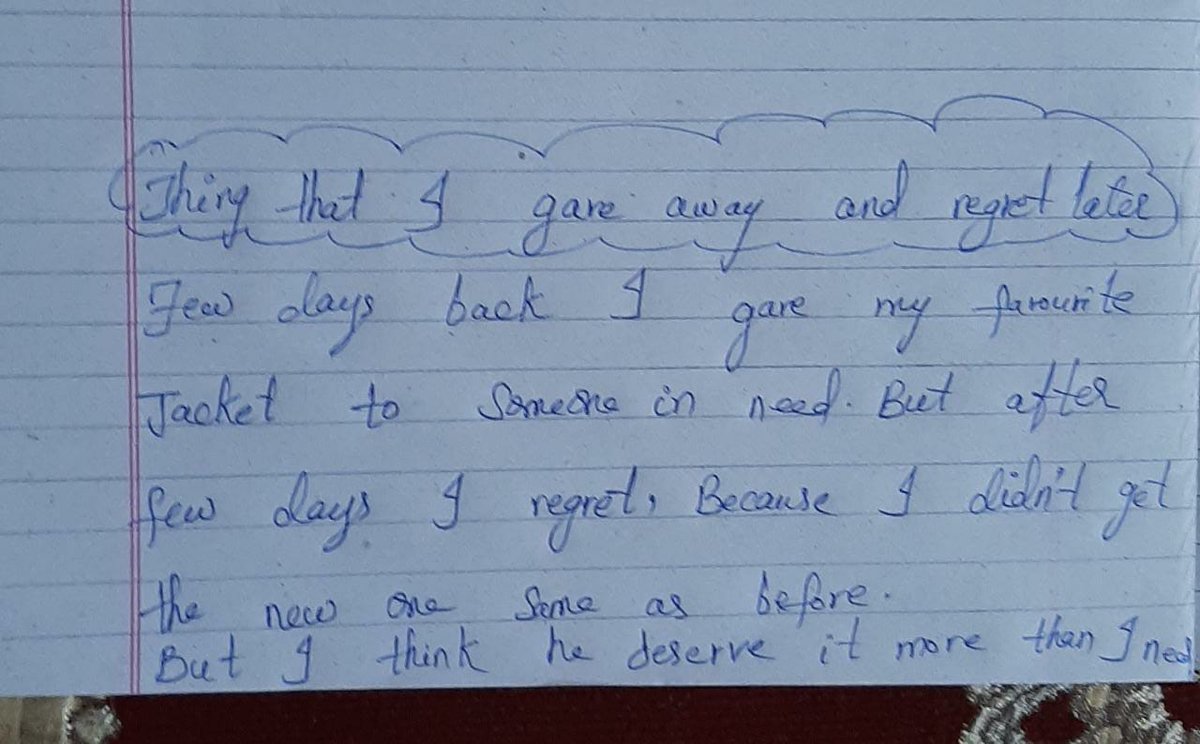 Thing that I gave away and regret later
Few days back I gave my favourite
Jacket to Someone in need. But after
few days I regret, Because I didn't get
the new one Same as before.
But I think he deserve it more than I need